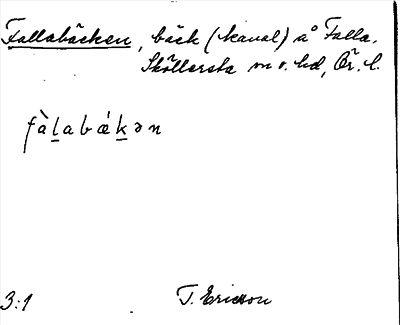 Fallabäcken, bäck (kanal) å Falla.
Sköllersta sn o. hd, Ör. l.
fàl̠abǽk̠ən
3:1 T. Ericson